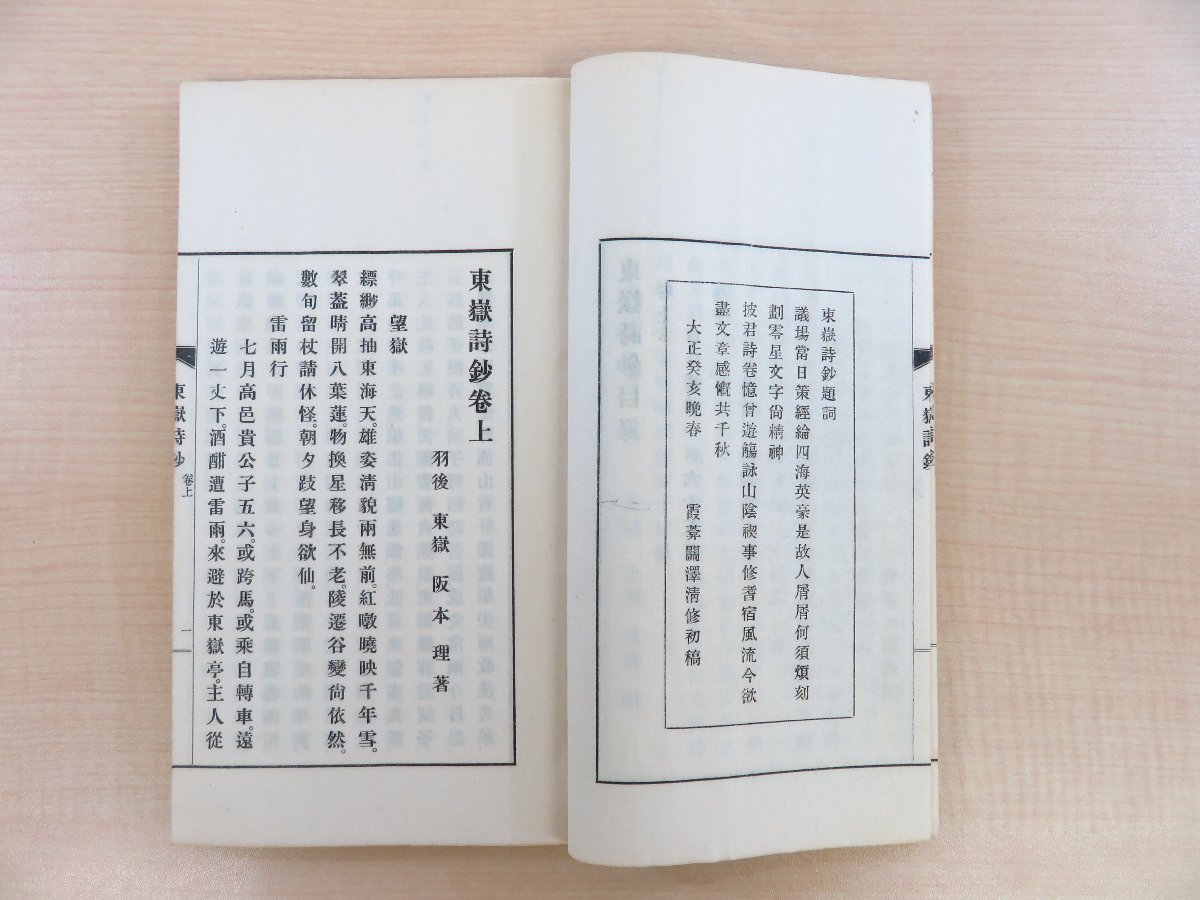 東嶽詩鈔題詞
議場當日策經綸四海英豪是故人屑屑何須煩刻
劃零星文字尙精神
披君詩卷憶曾遊觴詠山陰禊事修耆宿風流今欲
盡文章感慨共千秋
大正癸亥晚春
霞菴關澤淸修初稿
東嶽詩鈔
東嶽詩鈔卷上
羽後 東嶽 阪本理著
望嶽
縹緲高抽東海天。雄姿淸貌兩無前。紅暾曉映千年雪。
翠蓋晴開八葉蓮。物換星移長不老。陵遷谷變尙依然。
數旬留杖請休怪。朝夕跂望身欲仙。
雷雨行
七月高邑貴公子五六。或跨馬。或乘自轉車。遠
遊一丈下。酒酣遭雷雨。來避於東嶽亭。主人從
東嶽詩鈔
卷上
一